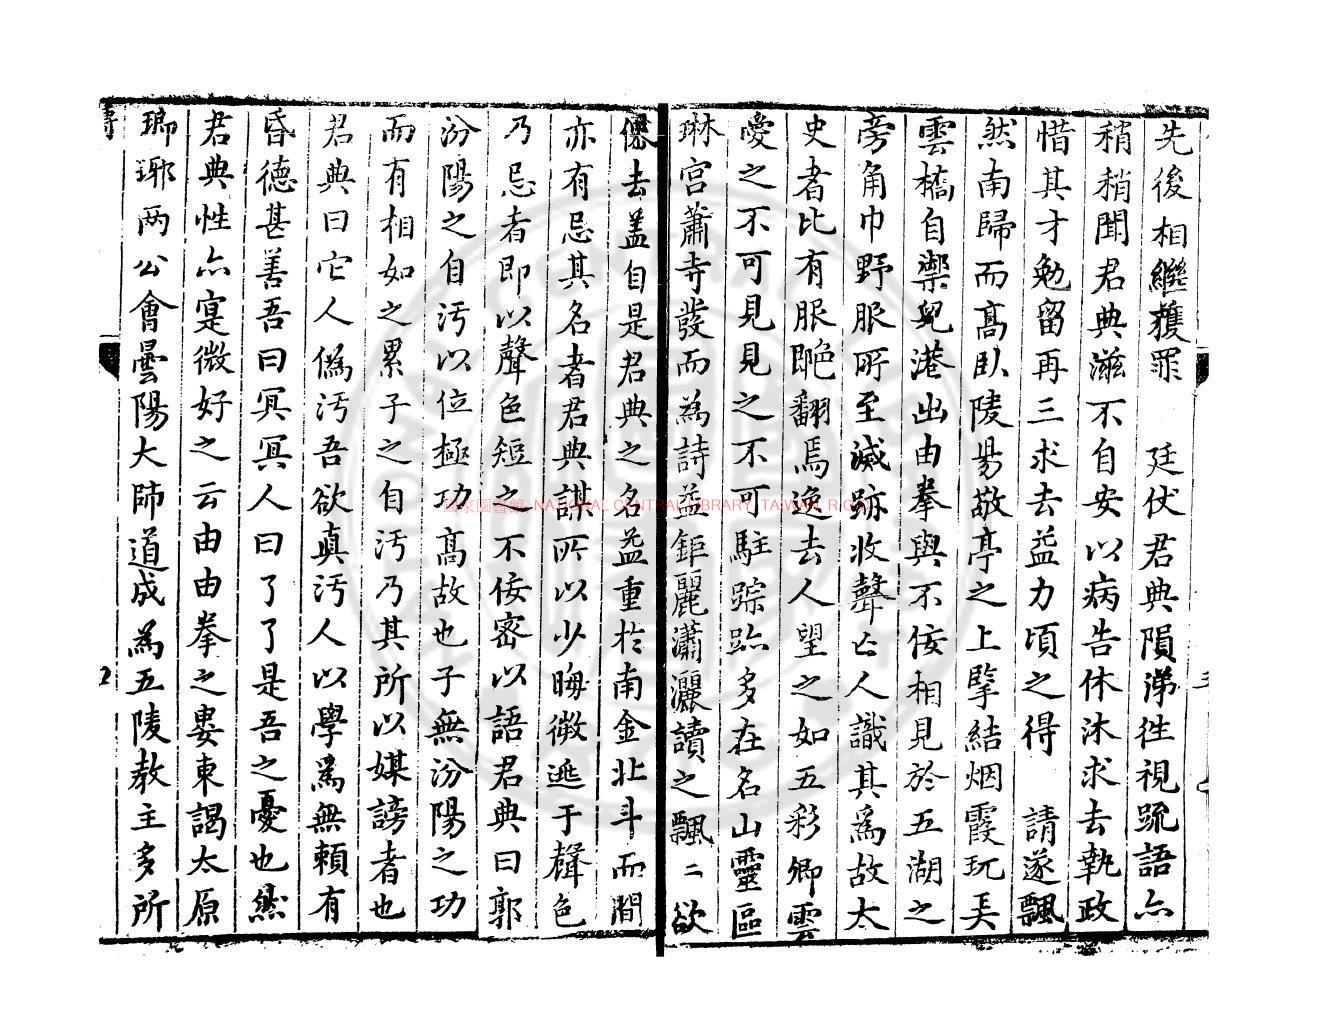 先後相繼獲罪　廷伏君典隕涕徃視疏語亦
稍稍聞君典滋不自安以病告休沐求去執政
惜其才勉留再三求去益力頃之得　請遂飄
然南歸而高臥陵昜敬亭之上掔結烟霞玩美
雲橋自禦兒港出由拳與不佞相見於五湖之
旁角巾野服所至滅跡收聲亡人識其爲故太
史者比有服艴翻焉逸去人望之如五彩卿雲
愛之不可見見之不可駐踪跡多在名山靈區
琳宮蕭寺發而為詩益鉅麗瀟灑讀之飄二欲
僊去盖自是君典之名益重扵南金北斗而間
亦有忌其名者君典謀所以少晦微遯于聲色
乃忌者即以聲色短之不佞宻以語君典曰郭
汾陽之自汚以位極功高故也子無汾陽之功
而有相如之累子之自汚乃其所以媒謗者也
君典曰它人僞汚吾欲真汚人以學爲無頼有
昏德甚善吾曰冥冥人曰了了是吾之憂也然
君典性亦寔微好之云由由拳之婁東謁太原
瑯琊两公會曇陽大師道成為五陵教主多所
國家圖書館 NATIONAL CENTRAL LIBRARY, TAIWAN, R.O.C